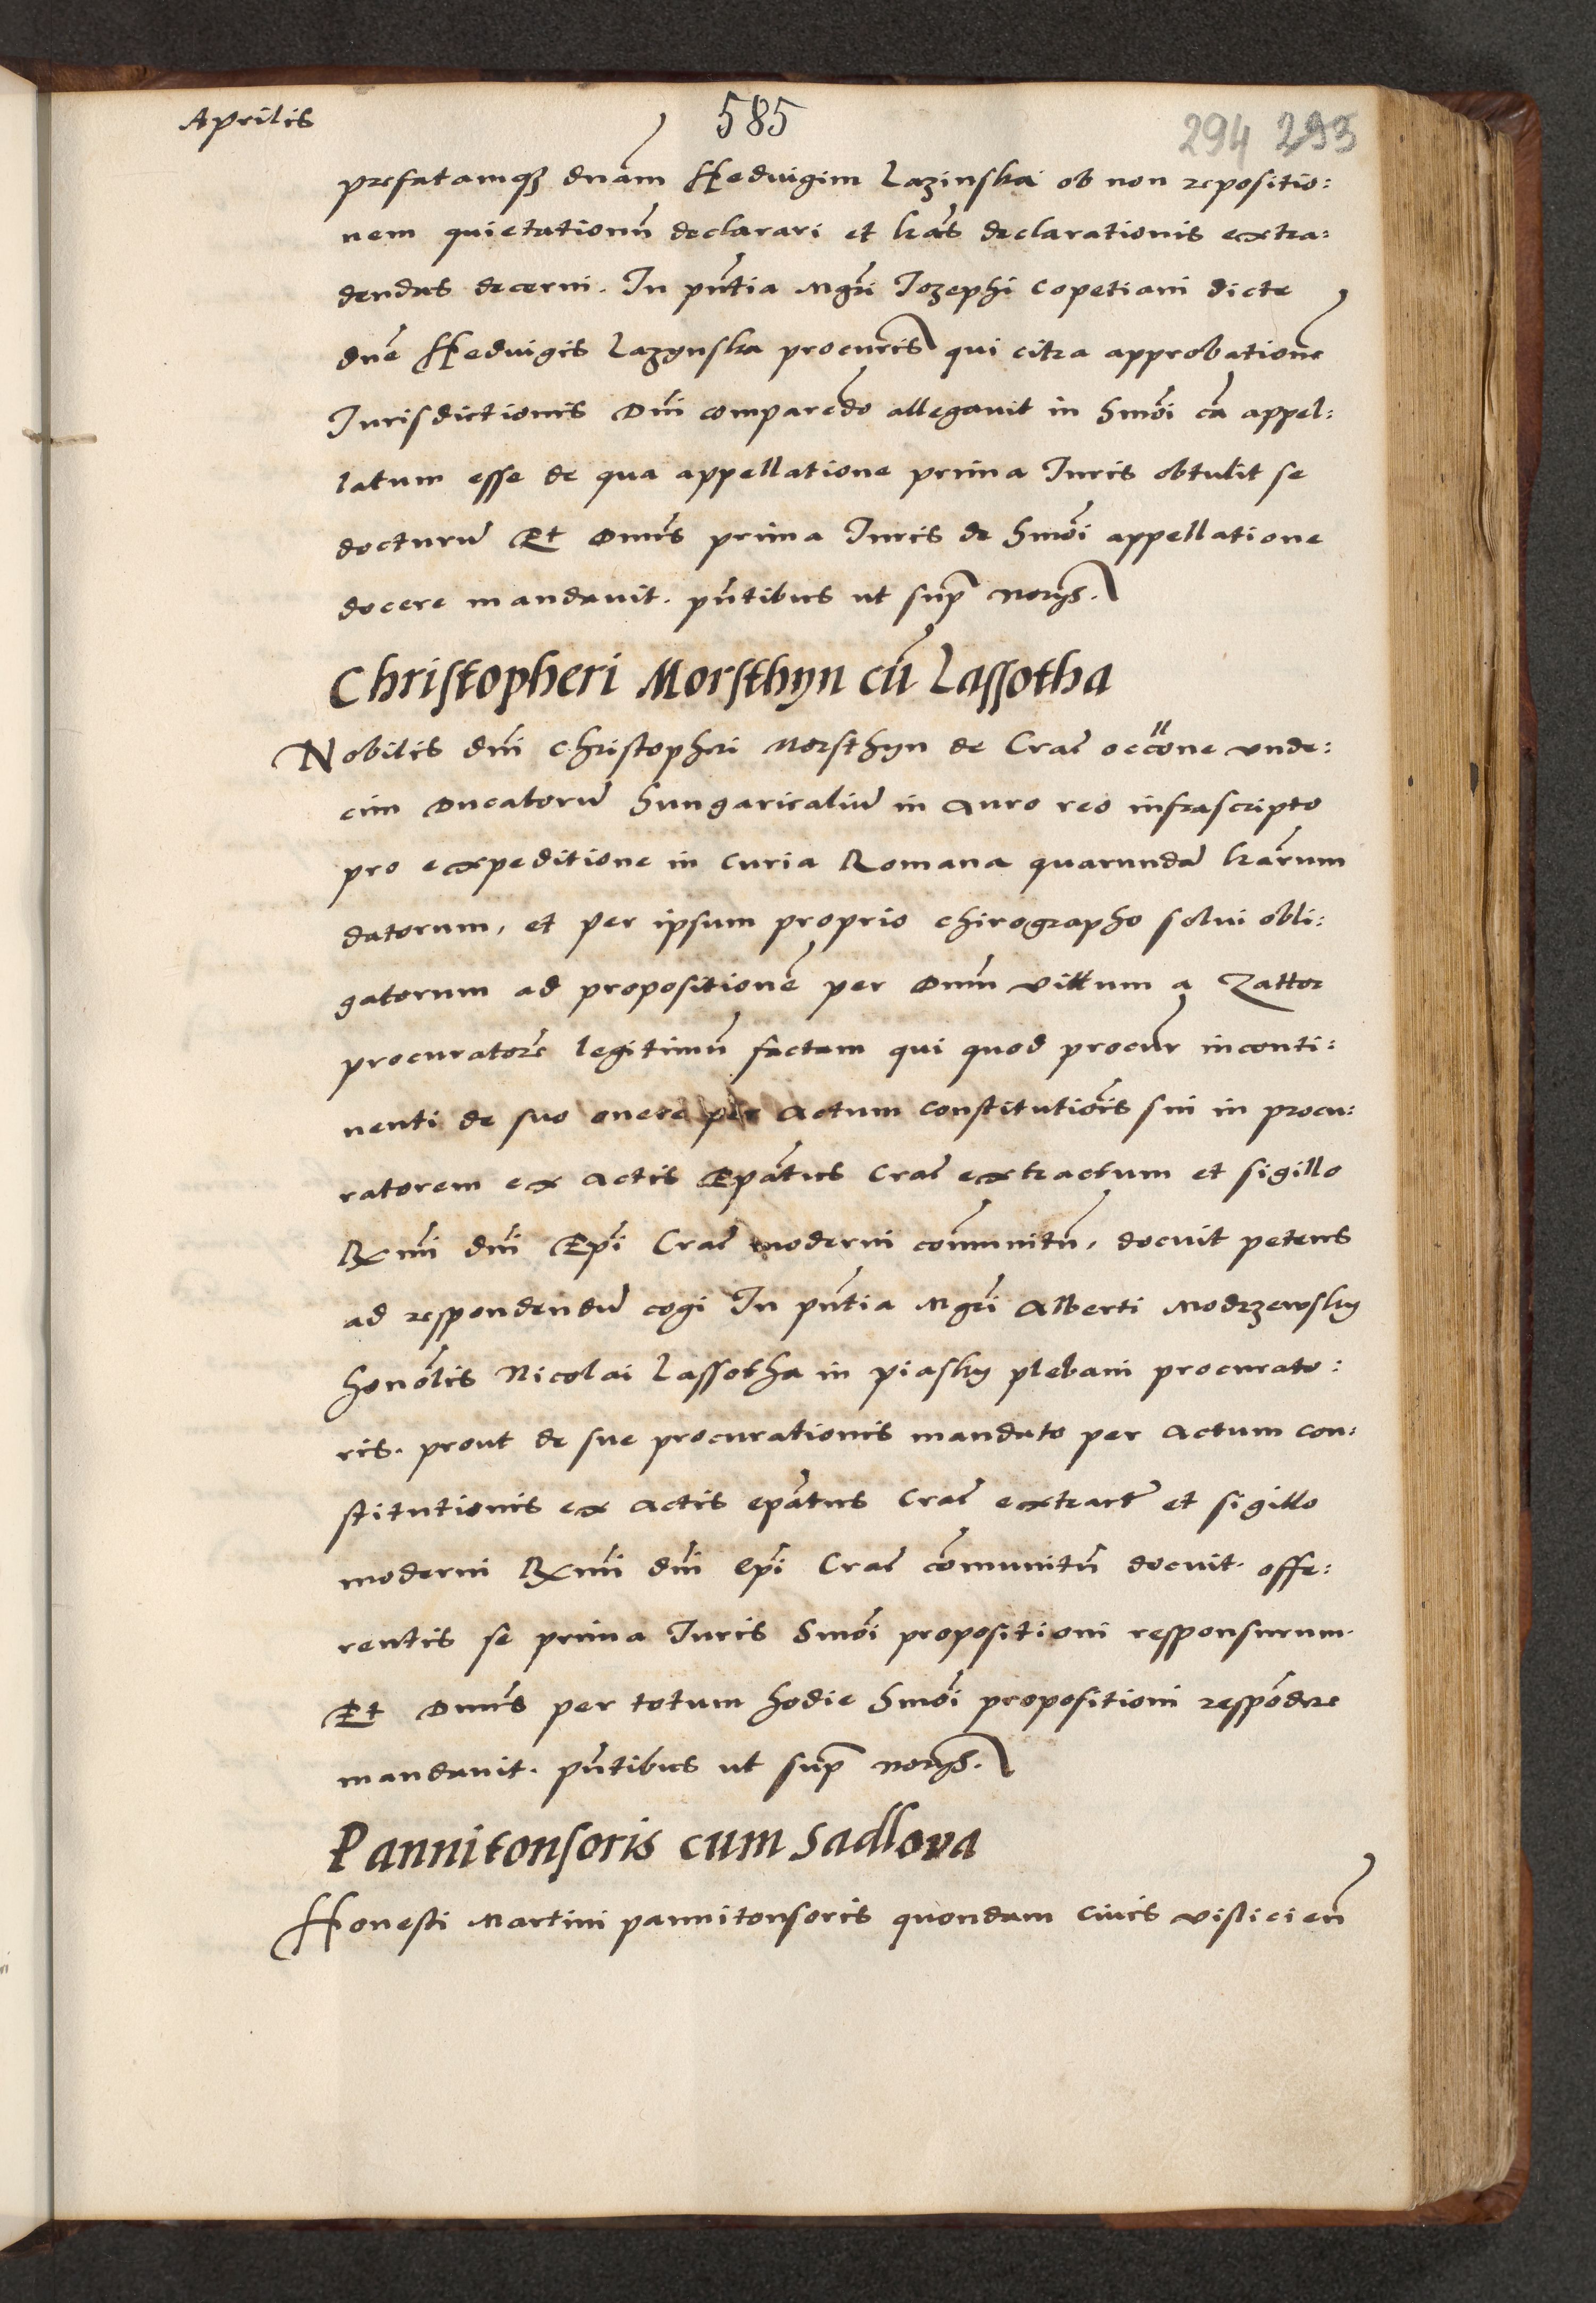 Aprilis
585
294 293
prefatamq3 dnam Hedvigim Lazinska ob non repositio:
nem quietationũ declarari et lrãs declarationis extra:
dendas decerni. In pñtia Mgri Iozephi Copetiani dicte
dnẽ Hedvigis Lazynska procuris qui citra approbationẽ
Iurisdictionis Dni comparẽdo allegavit in Smõi cã appel:
latum esse de qua appellatione prima Iuris obtulit se
docturũ Et Dnus prima Iuris de Smõi appellatione
docere mandavit. pñtibus ut sup Norys.
Christopheri Morsthyn cũ Lassotha
Nobilis dni Christopheri Morsthyn de Crac occõne unde:
cim Ducatorũ Hungaricaliũ in Auro reo infrascripto
pro expeditione in Curia Romana quarundã lrãrum
datorum, et per ipsum proprio chirographo solvi obli:
gatorum ad propositionẽ per Dnum villum a Zattor
procuratorẽ legitimũ factam qui quod procur inconti:
nenti de suo onere per Actum constitutiõis sui in procu:
ratorem ex Actis Epãtus Crac extractum et sigillo
Rxmi dni Epi Crac moderni cõmunitũ, docuit petens
ad respondendũ cogi In pñtia Mgri Alberti Modrzewsky
honõlis Nicolai Lassotha in piasky plebani procurato:
ris. prout de sue procurationis mandato per Actum con:
stitutionis ex Actis epãtus Crac extract et sigillo
moderni Rxmi dni Epi Crac cõmunitũ docuit. offe:
rentis se prima Iuris Smõi propositioni responsurum.
Et Dnus per totum hodie Smõi propositioni respõdere
mandavit. pñtibus ut sup Norys.
Pannitonsoris cum Sadlova
Honesti Martini pannitonsoris quondam Civis Visliciẽn